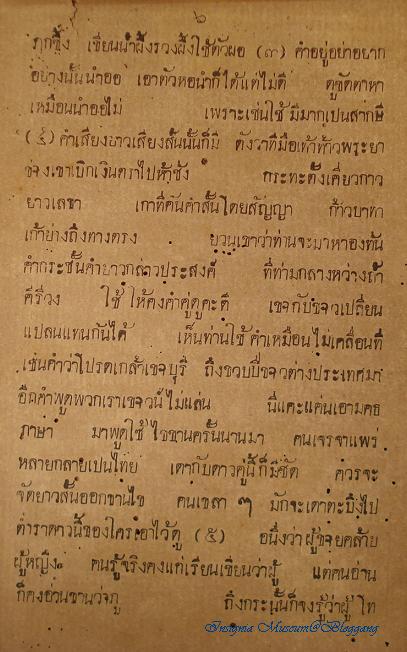 ๖
ภุกซึ้ง เขียนน้ำผึ้งรวงผึ้งใช้ตัวผอ (๓) คำอยู่อย่าอยาก
อย่างนั้นนำออ เอาตัวหอนำก็ได้แต่ไม่ดี ดูขัดตาหา
เหมือนนำออไม่ เพราะเช่นใช้ มีมากเปนสากษี
(๔) คำเสียงยาวเสียงสั้นนั้นก็มี ดังวาทีมือเท้าท้าวพระยา
ช่างเขาเบิกเงินตราไปห้าชั่ง กระทะตั้งเคี่ยวกาว
ยาวเลขา เกาที่คันคำสั้นโดยสัญญา ก้าวบาทา
เก้าย่างถึงทางตรง ญวนเขาว่าท่านจะมาหาองทัน
คำกระชั้นคำยาวกล่าวประสงค์ ที่ท่ามกลางหว่างถ้ำ
คีรีวง ใช้ ให้คงคำคู่ดูคะดี เขจกับขจาวเปลี่ยน
แปลนแทนกันได้ เห็นท่านใช้ คำเหมือน ไม่เคลื่อนที่
เช่นคำว่าโปรดเกล้าเขจบุรี ถึง
อีกคำพูดพวกเรา ไม่แล่น นี่แคะแค่นเอามคธ
ภาษา มาพูดใช้ ไขขานครั้นนานมา คนเจรจาแพร่
หลายกลายเปนไทย เดากับดาวคู่นี้ก็มีชัด ควรจะ
จัดยาวสั้นออกขานไข คนเขลา ๆ มักจะเดาตะบึงไป
ตำราดาวนี้ของใครเอาไว้ดู (๕) อนึ่งว่าผู้ชายคล้าย
ผู้หญิง คนรู้จริงคงแก่เรียนเขียนว่าผู้ แต่คนอ่าน
ก็คงอ่านขานว่าภู ถึงกระนั้นก็จงรู้ว่าผู้ ไท
Insignia Museum@Bloggang